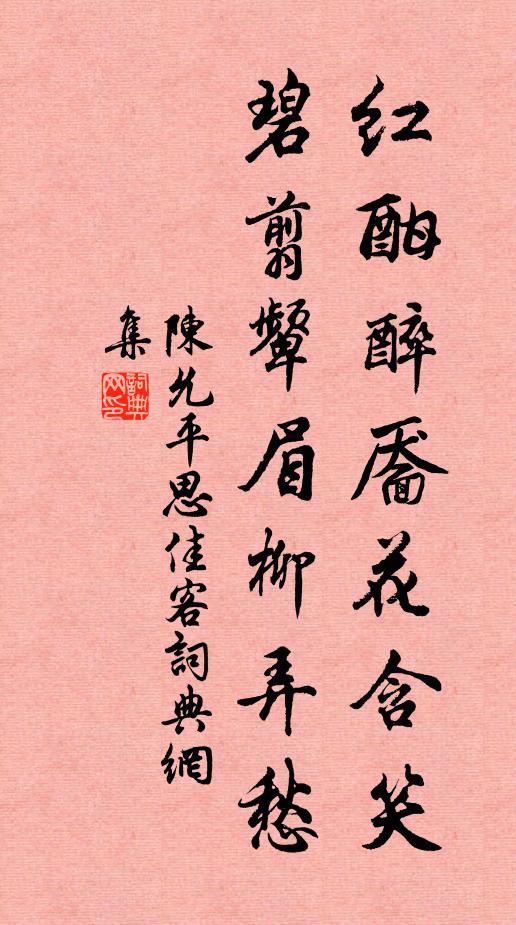 红酣醉靥花含笑
碧剪颦眉柳弄愁
陳允平思佳客詞典網
集
詞典
网印